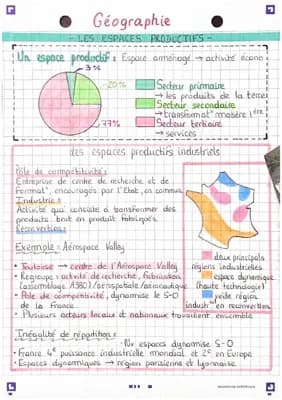 Géographie
- LES ESPACES PRODUCTIFS -
Un espace productif : Espace aménagé → activité écono
3%
20%
77%
Secteur primaire
→ les produits de la terre
Secteur secondaire
→ transformat° matière 1ère
Secteur tertiaire
→ services
les espaces productifs industriels
Pôle de compétitivité :
Entreprise de centre de recherche et de
format°, encouragés par l'Etat, en commun
Industrie :
Activité qui consiste à transformer des
produits brut en produit fabriqués.
Reconversion :
Exemple : Aerospace Valley
• Toulouse → centre de l'Aerospace Valley
• Regroupe : activité de recherche, fabrication
(assemblage A380)/aérospatiale/aéronautique
• Pôle de compétitivité, dynamise le S-O
de la France.
• Plusieurs acteurs locaux et nationaux travaillent ensemble
deux principals
régions industrielles
espace dynamique
(haute technologie)
vieille région
industri° en reconversion
Inégalité de répartition :
dynamise S-O
• France 4e puissance industrielle mondial et 2e en Europe
• Espaces dynamiques → région parisienne et lyonnaise